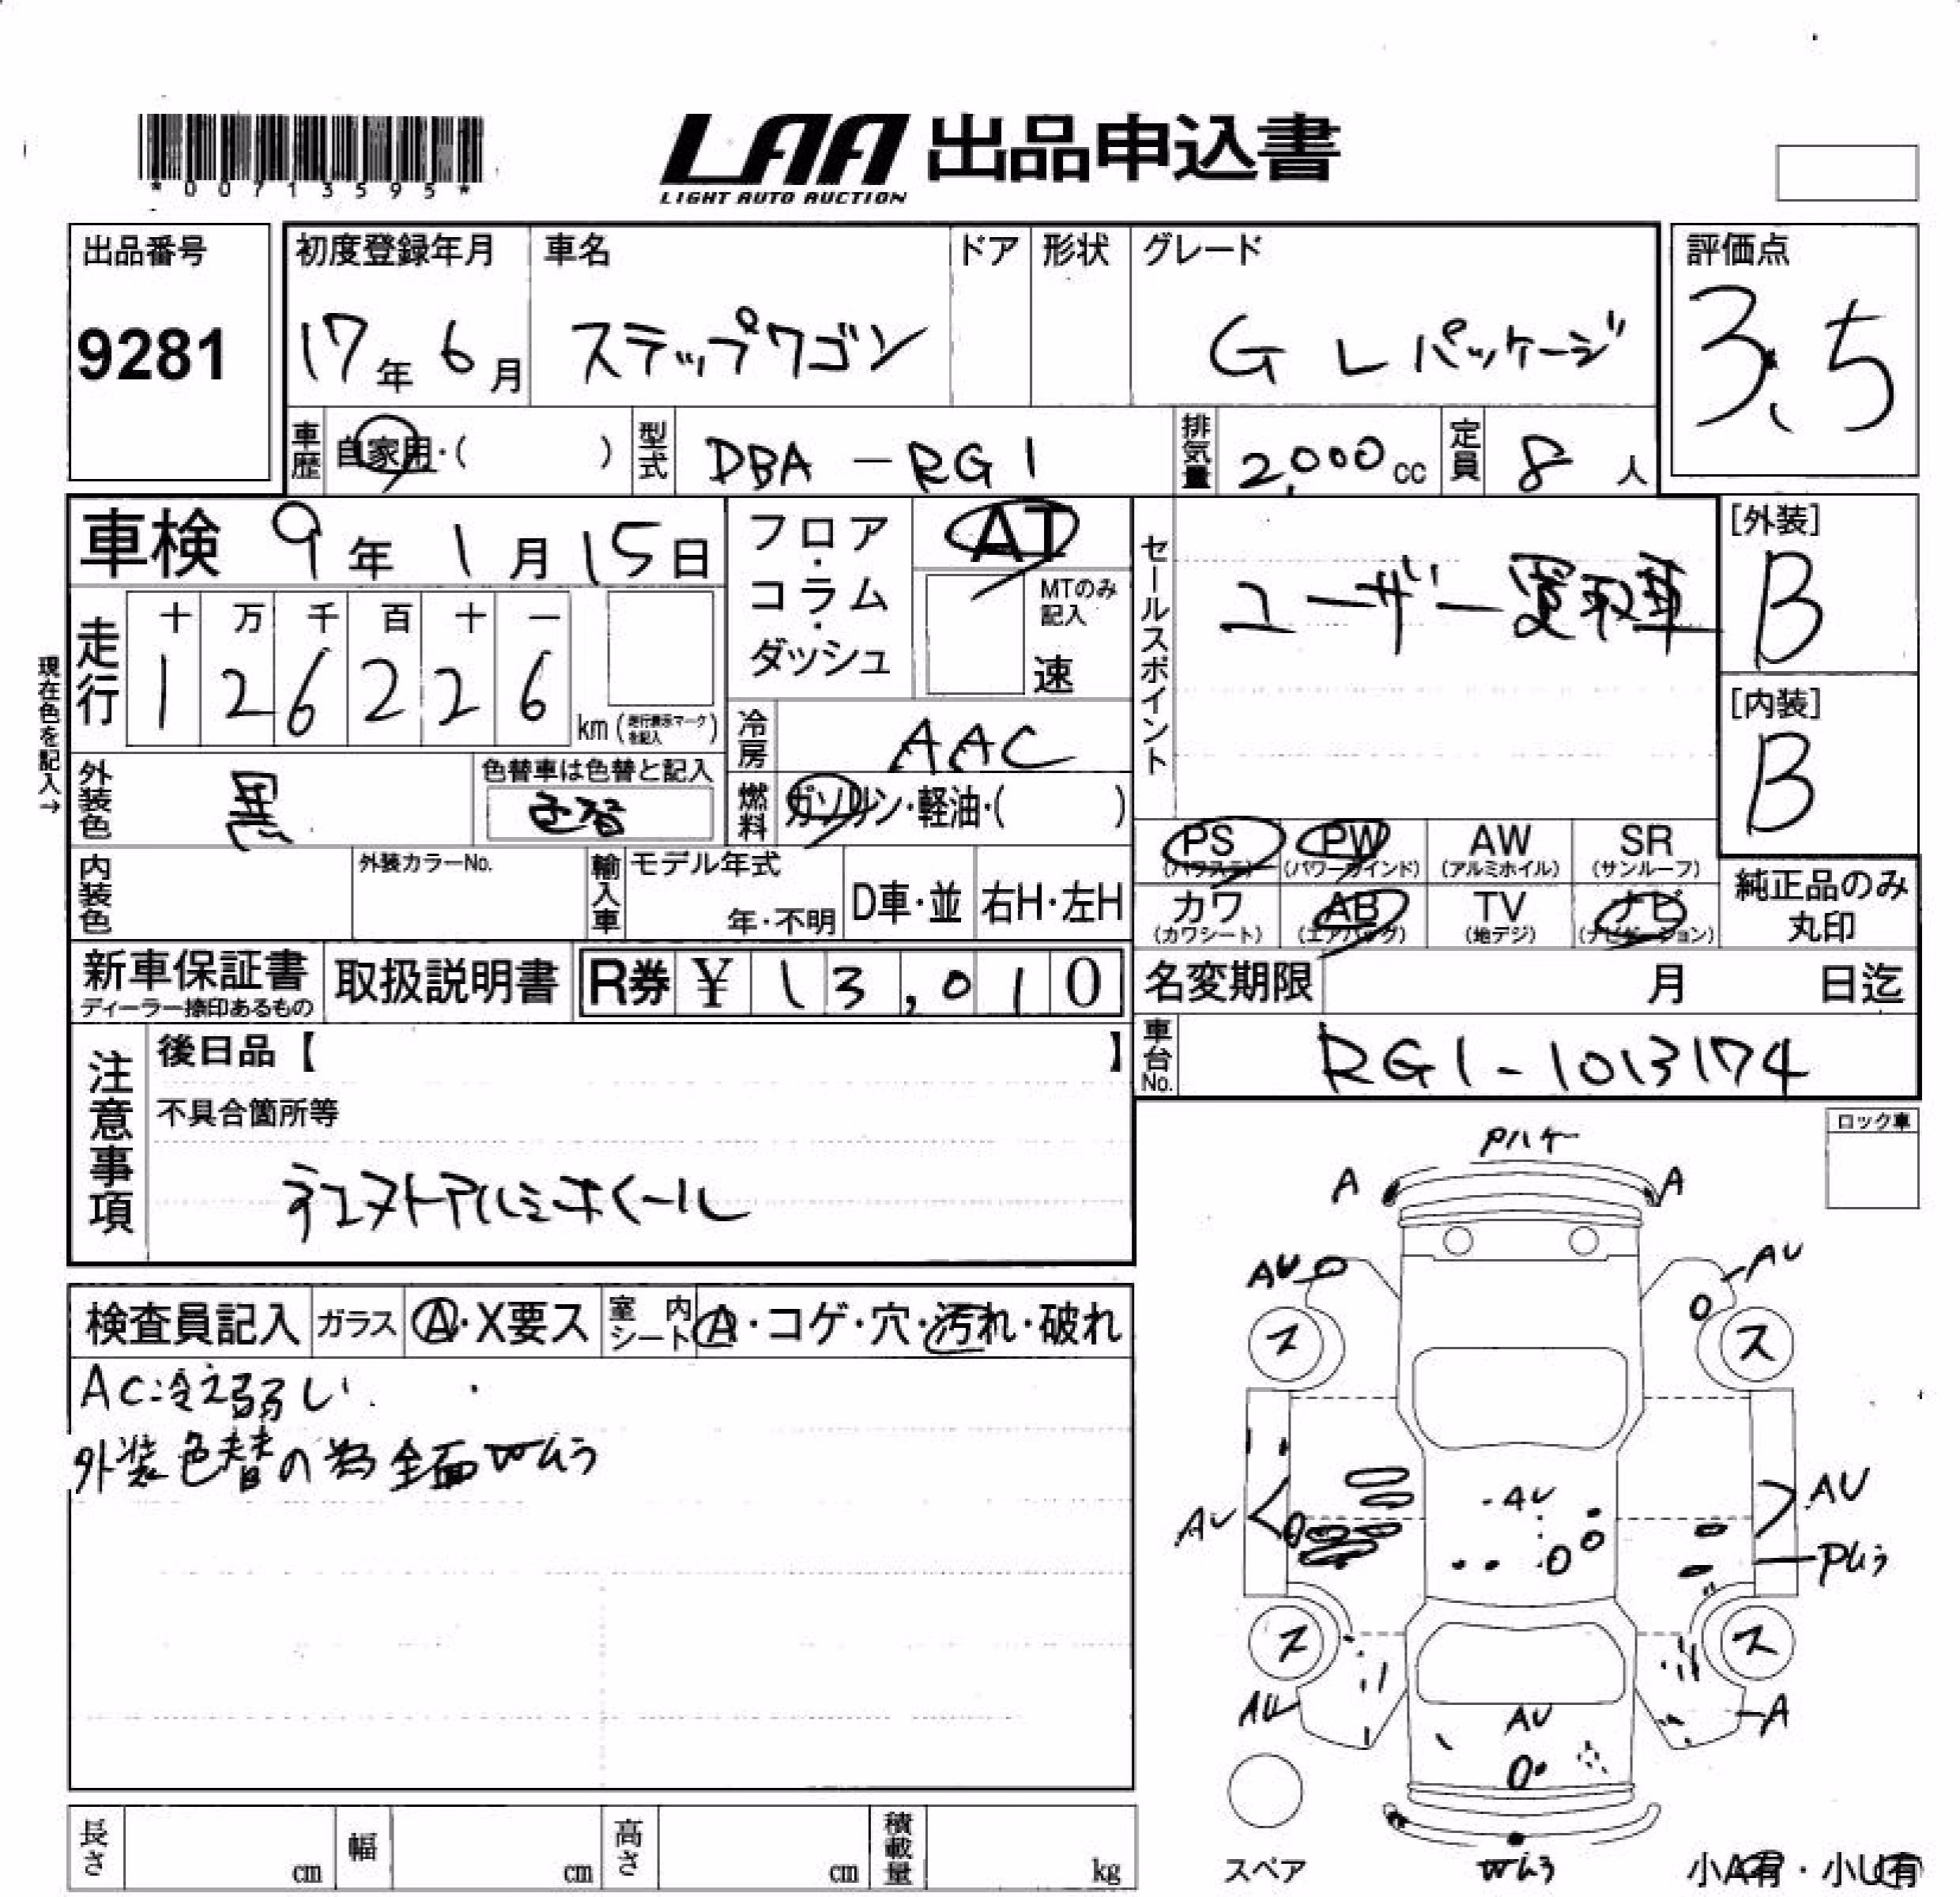 *00713595*
LAA 出品申込書
LIGHT AUTO AUCTION
出品番号
9281
初度登録年月
17年 6月
車名
ステップワゴン
ドア
形状
グレード
G Lパッケージ
評価点
3.5
車歴
自家用・( )
型式
DBA-RG1
排気量
2,000cc
定員
8人
車検 9年 1月 15日
フロア・コラム・ダッシュ
AT
MTのみ記入
速
セールスポイント
ユーザー買取車
[外装]
B
[内装]
B
現在色を記入→
走行
十 万 千 百 十 一
1 2 6 2 2 6
km (走行表示マークを記入)
冷房
AAC
外装色
黒
色替車は色替と記入
色替
燃料
ガソリン・軽油・( )
PS (パワステ)
PW (パワーウインド)
AW (アルミホイル)
SR (サンルーフ)
カワ (カワシート)
AB (エアバッグ)
TV (地デジ)
ナビ (ナビゲーション)
純正品のみ丸印
内装色
外装カラーNo.
輸入車
モデル年式
年・不明
D車・並
右H・左H
新車保証書
ディーラー捺印あるもの
取扱説明書
R券 ¥ 13,010
名変期限 月 日迄
車台No.
RG1-1013174
注意事項
後日品【 】
不具合箇所等
アルミホイール
ロック車
Pハケ
A A
AU AU
ス ス
AU AU AU
Pムラ
ス ス
AU AU A
Wムラ
スペア
小A有・小U有
検査員記入
ガラス
A・X要ス
室内シート
A・コゲ・穴・汚れ・破れ
AC冷え弱い
外装色替の為全面Wムラ
長さ cm
幅 cm
高さ cm
積載量 kg